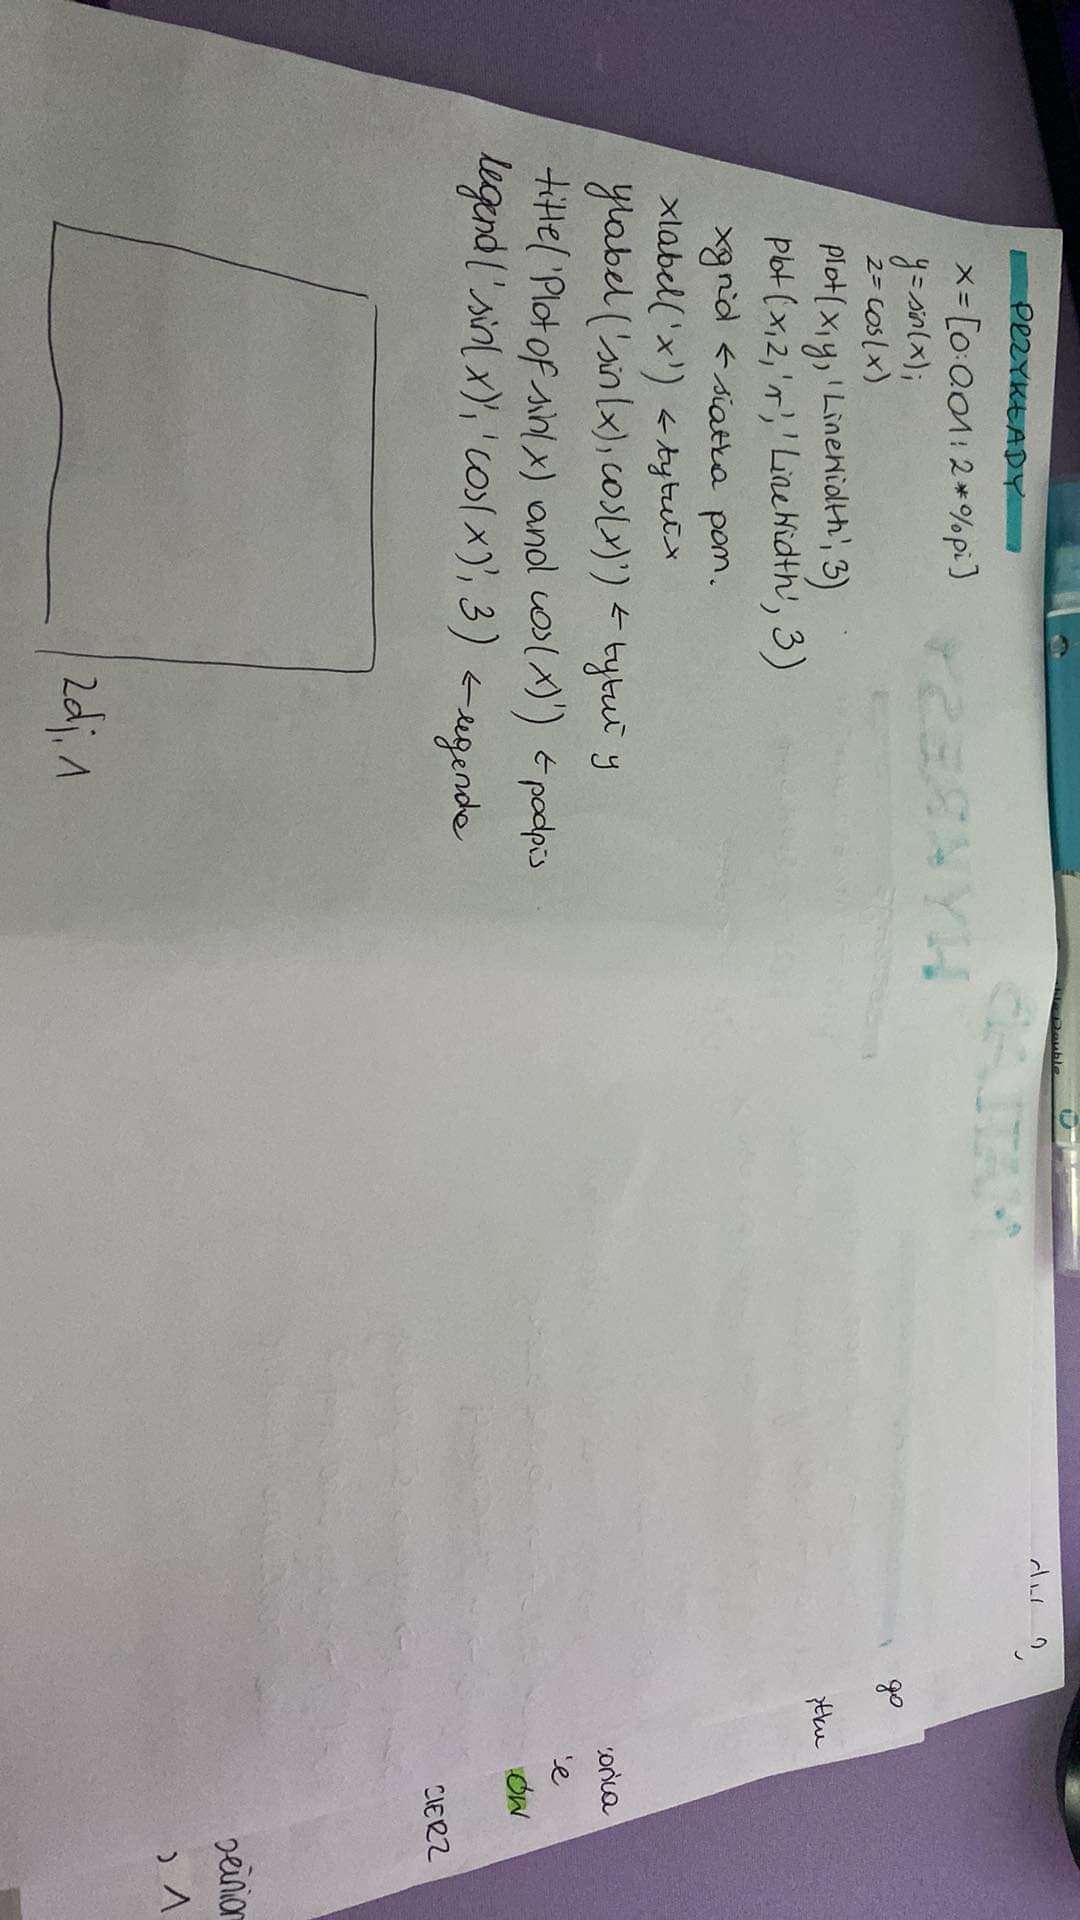 PRZYKŁADY
x=[0:0.01:2*%pi]
y=sin(x);
z=cos(x)
plot(x,y,'LineWidth',3)
plot(x,z,'r','LineWidth',3)
xgrid ← siatka pom.
xlabel('x') ← tytuł x
ylabel('sin(x),cos(x)') ← tytuł y
title('Plot of sin(x) and cos(x)') ← podpis
legend('sin(x)','cos(x)',3) ← legenda
zdj. 1
go
ÓW